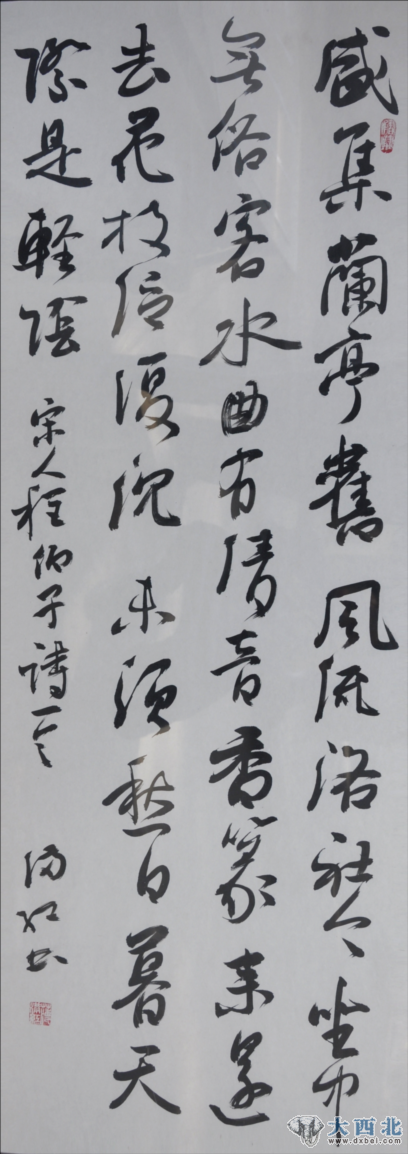 盛集蘭亭舊風流洛社今坐中
無俗客水曲有清音香篆来還
去花枝泛復沉未須愁日暮天
際是輕陰 宋人程伯子詩一 书
大西北
www.dxbei.com